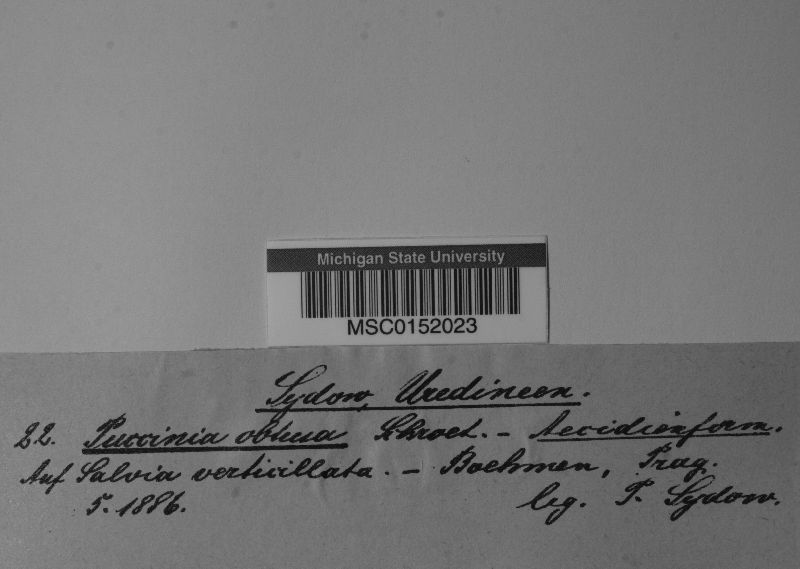 Michigan State University
MSC0152023
Sydow, Uredineen.
22. Puccinia obtusa Schroet. – Aecidienform.
Auf Salvia verticillata. – Boehmen, Prag.
5. 1886. leg. P. Sydow.